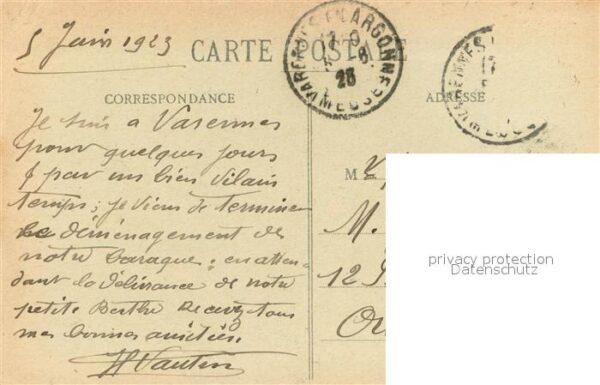 5 Juin 1923
CARTE POSTALE
VARENNES EN ARGONNE
23
MEUSE
VARENNES
MEUSE
CORRESPONDANCE
ADRESSE
Je suis a Varennes
pour quelques jours
par un bien vilain
temps; je viens de terminer
le déménagement de
notre baraque; en atten
dant la délivrance de notre
petite Berthe Recevez tous
mes bonnes amitiés.
M
M.
12
privacy protection
Datenschutz